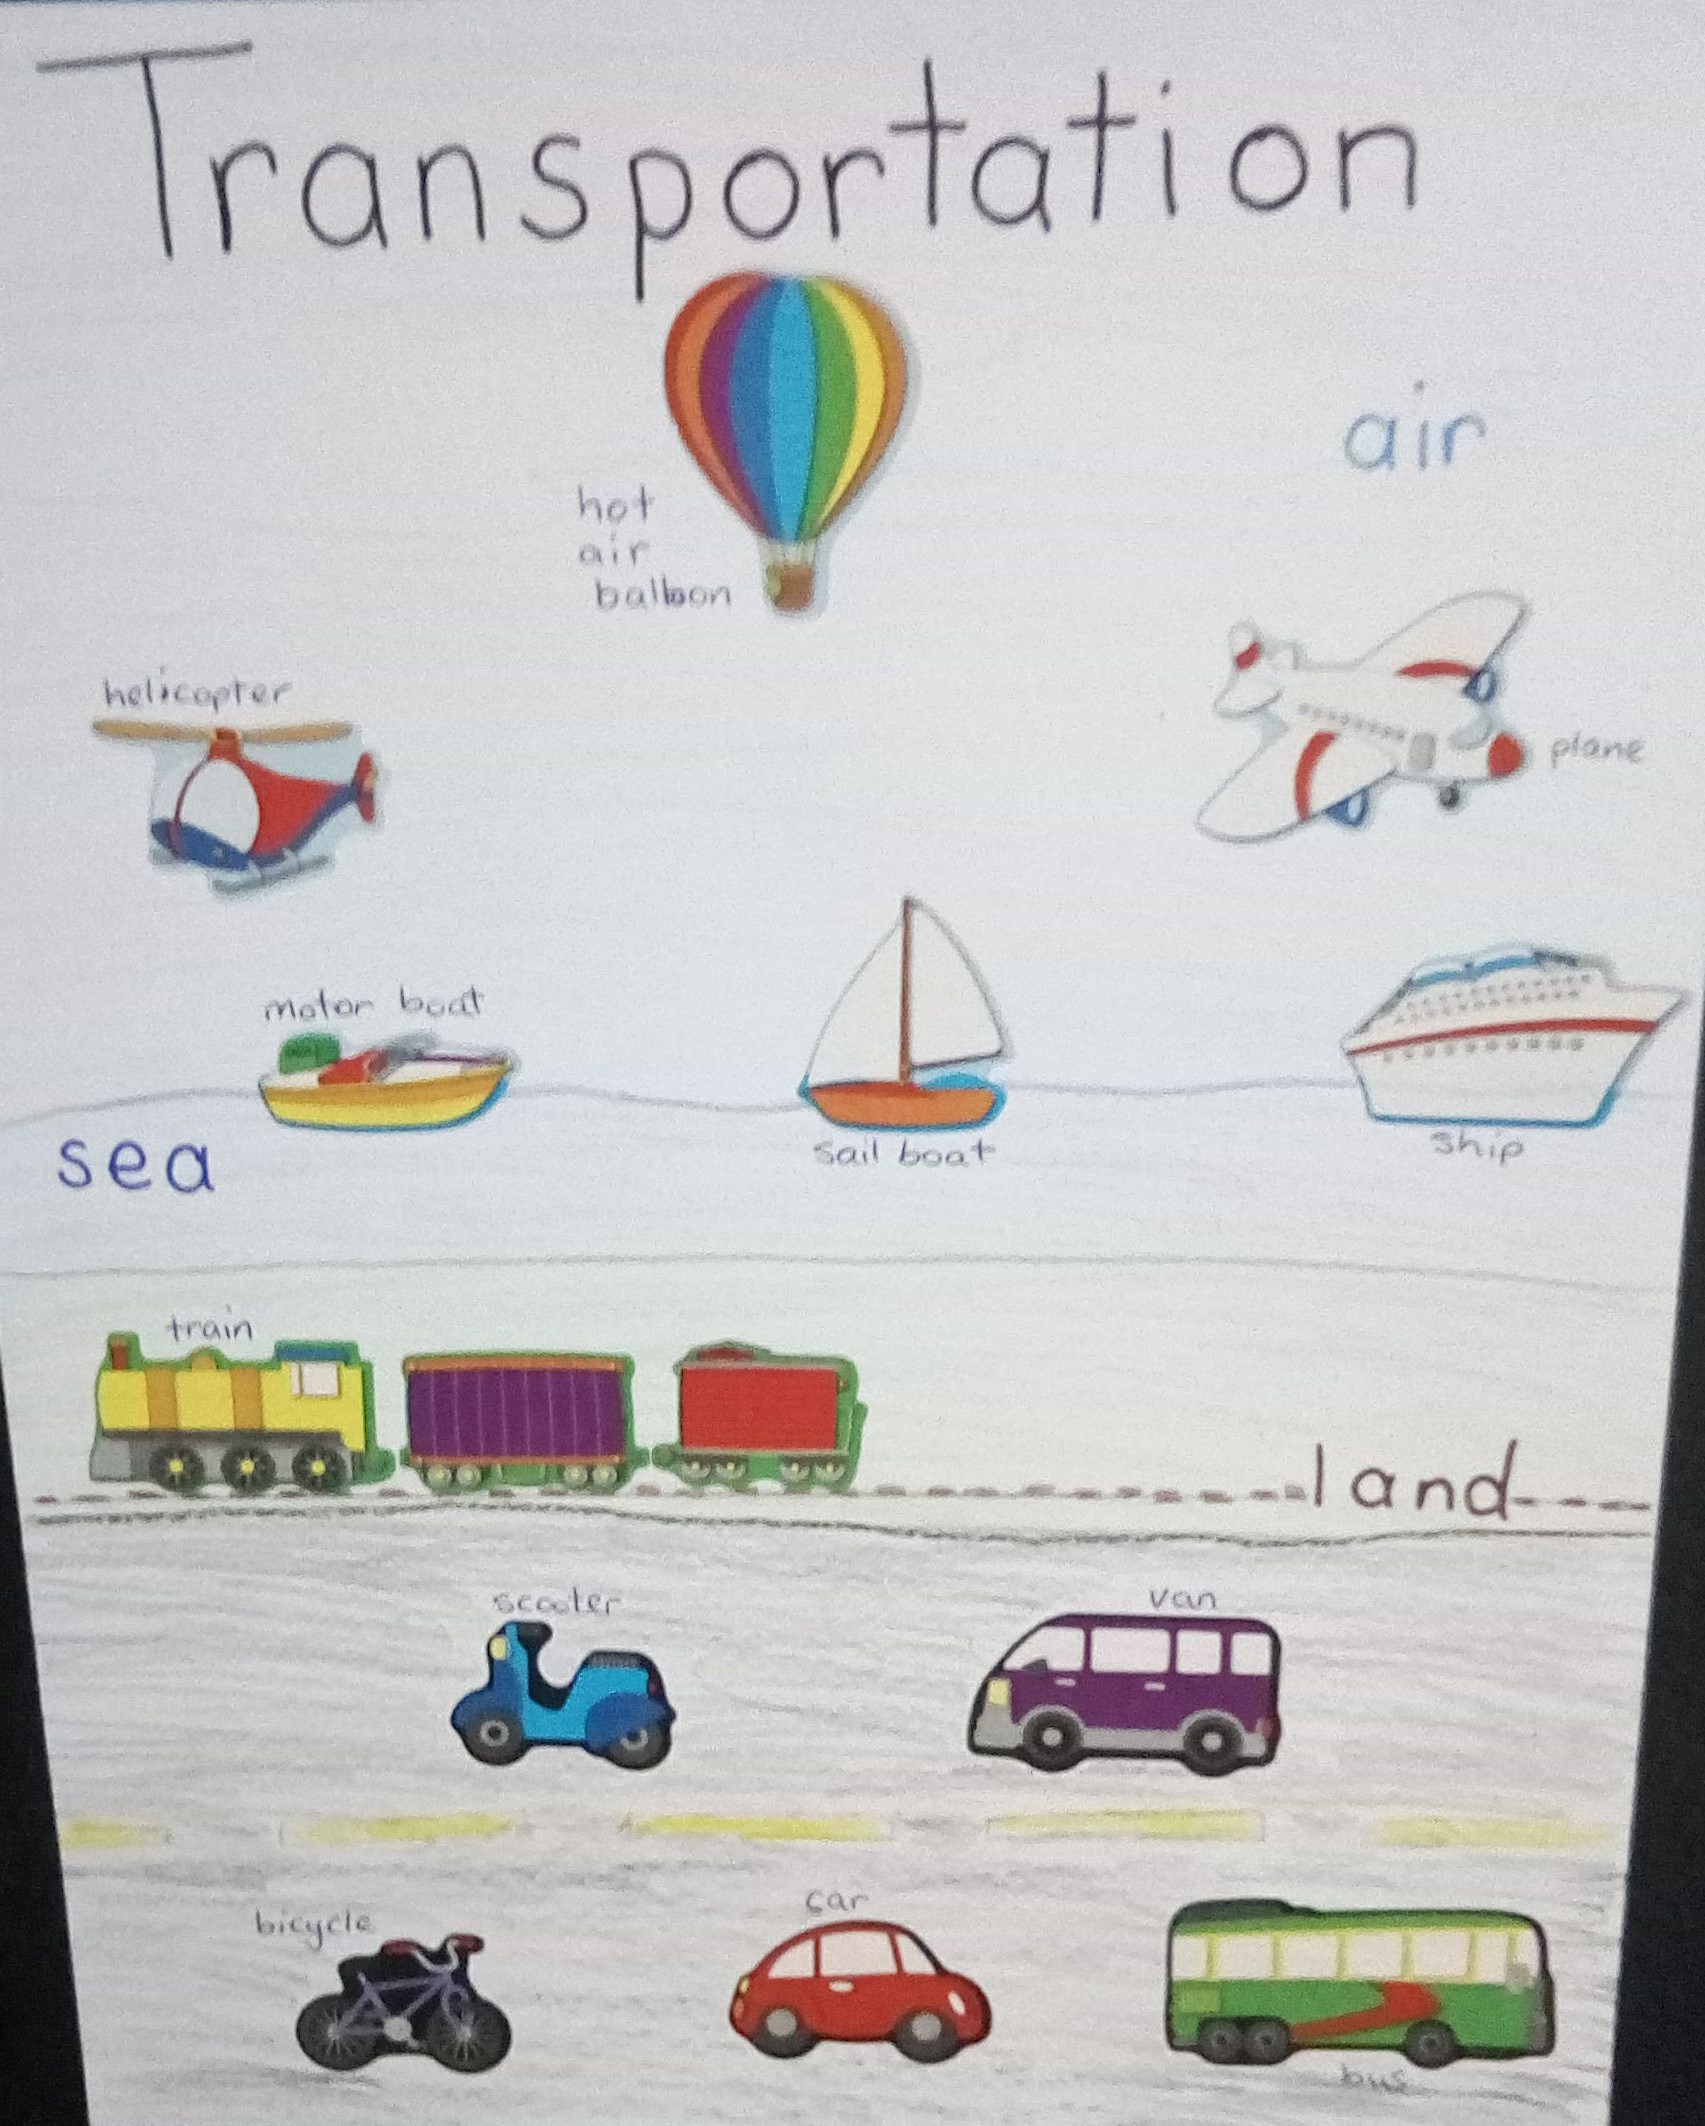 Transportation
air
hot
air
balloon
helicopter
plane
motor boat
sea
sail boat
ship
train
land
scooter
van
bicycle
car
bus